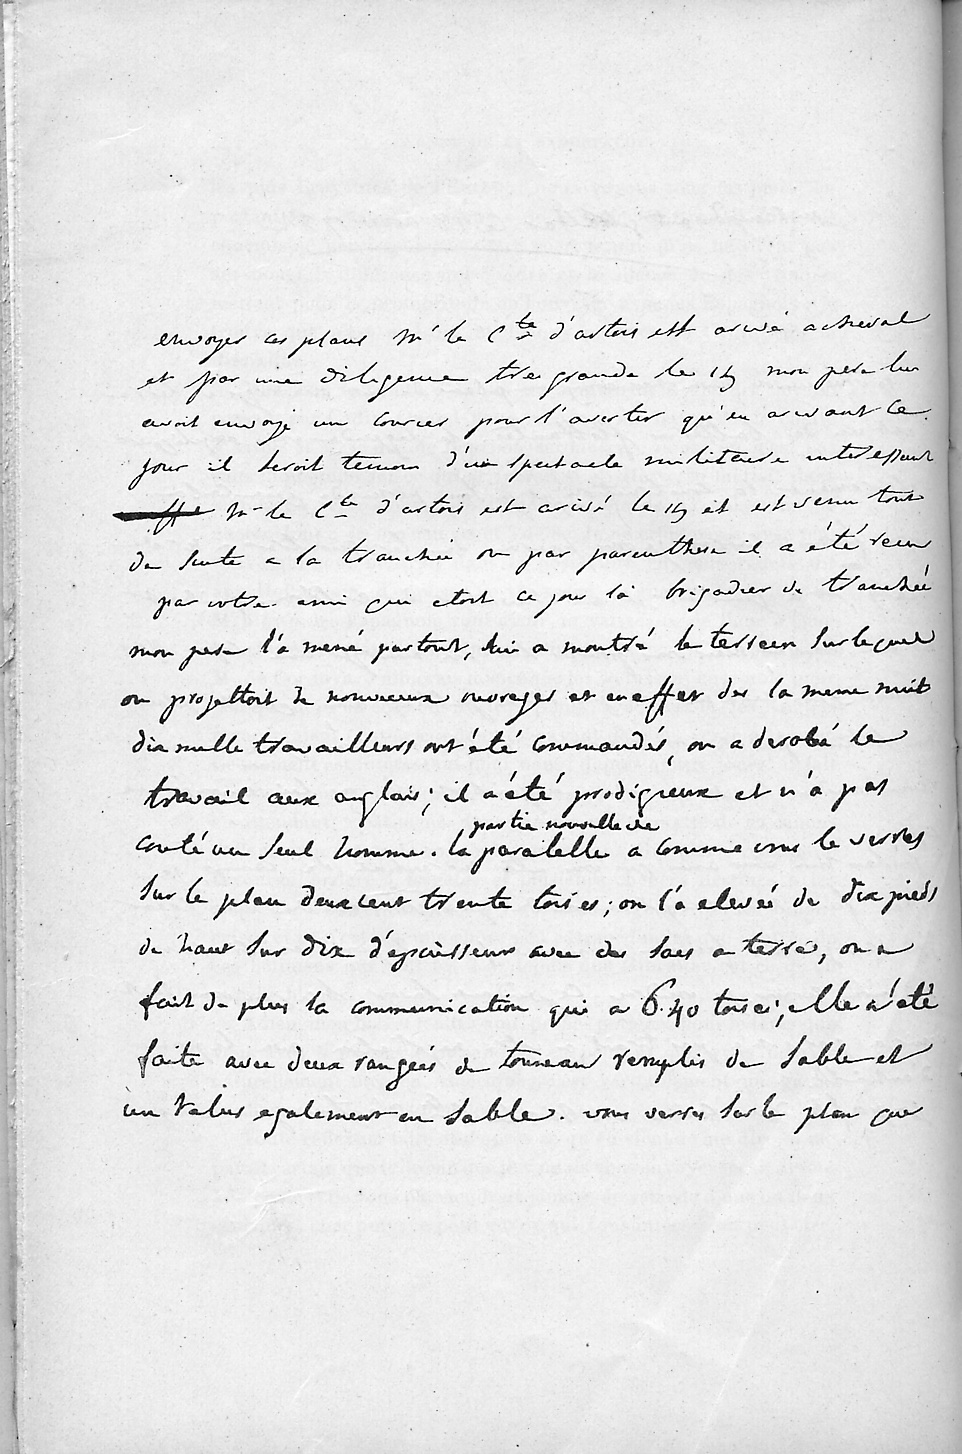 envoyer ces plans Mr le Cte d'artois est arivé a cheval
et par une diligence tres grande le 15 mon pere lui
avoit envoyé un courier pour l'avertir qu'en arivant ce
jour il seroit temoin d'un spectacle militaire interessant
Mr le Cte d'artois est arivé le 15 et est venu tout
de suite a la tranchée ou par parenthese il a été recu
par votre ami qui etoit ce jour la brigadier de tranchée
mon pere l'a mené partout, lui a montré le terrein sur lequel
on projettoit de nouveaux ouvrages et en effet des la meme nuit
dix mille travailleurs ont été commandés, on a derobé le
travail aux anglais; il a été prodigieux et n'a pas
partie nouvelle de
couté un seul homme. la paralelle a comme vous le verres
sur le plan deux cent trente toises; on l'a elevée de dix pieds
de haut sur dix d'epaisseur avec des sacs a terre, on a
fait de plus la communication qui a 640 toises; elle a été
faite avec deux rangées de tonneau remplis de sable et
un talus egalement en sable. vous verres sur le plan que